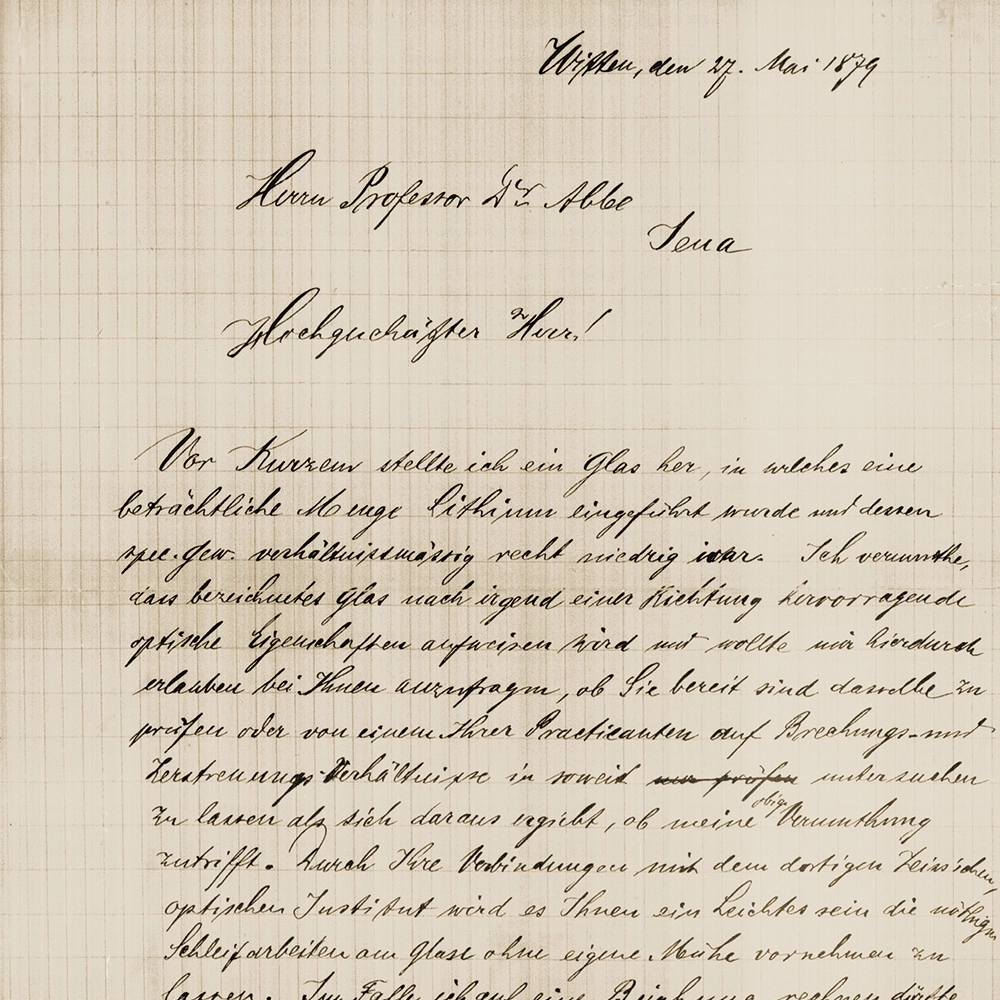 Witten, den 27. Mai 1879
Herrn Professor Dr Abbe
Jena
Hochgeschäzter Herr!
Vor Kurzem stellte ich ein Glas her, in welches eine
beträchtliche Menge Lithium eingeführt wurde und dessen
spec. Gew. verhältnissmässig recht niedrig war. Ich vermuthe,
dass bezeichnetes Glas nach irgend einer Richtung hervorragende
optische Eigenschaften aufweisen wird und wollte mir hierdurch
erlauben bei Ihnen anzufragen, ob Sie bereit sind dasselbe zu
prüfen oder von einem Ihrer Practicanten auf Brechungs- und
Zerstreuungs-Verhältnisse in soweit nur prüfen untersuchen
zu lassen als sich daraus ergiebt, ob meine obige Vermuthung
zutrifft. Durch Ihre Verbindungen mit dem dortigen Zeiss'schen,
optischen Institut wird es Ihnen ein Leichtes sein die nöthigen
Schleifarbeiten am Glase ohne eigene Mühe vornehmen zu
lassen. Im Falle ich auf eine rechnen dürfte